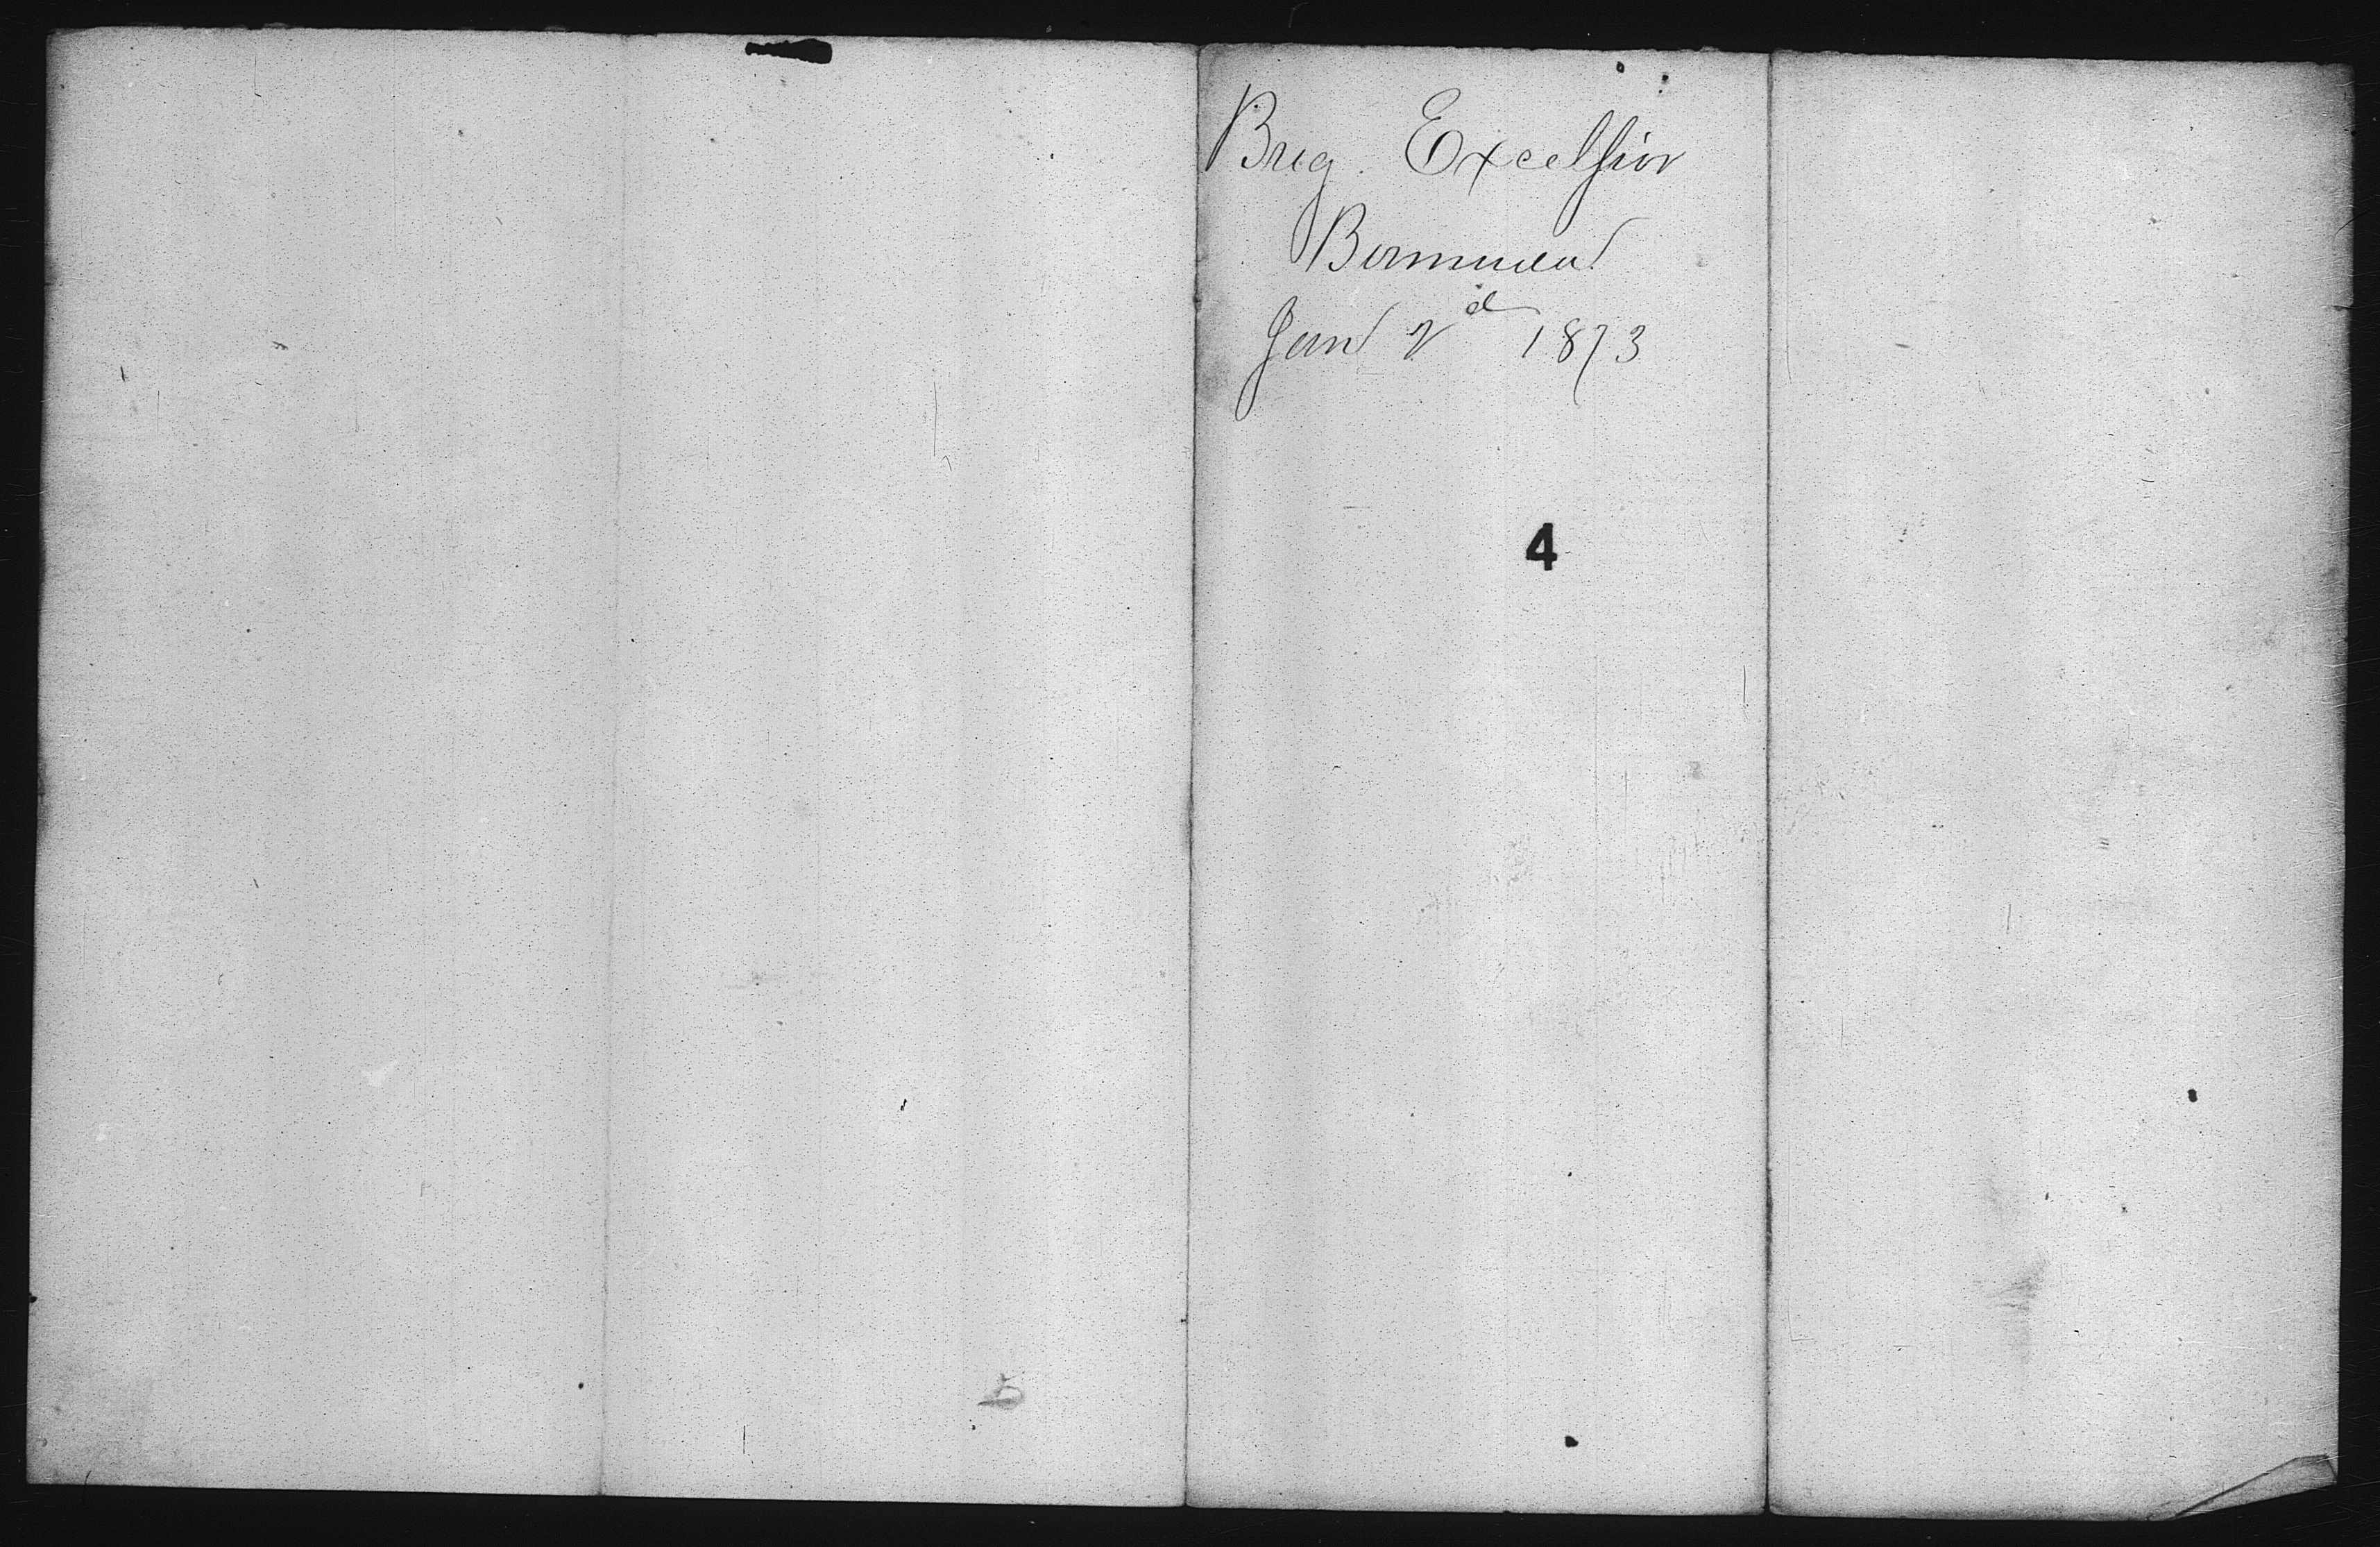 Brig. Excelsior
Bermuda
Jan 2d 1873
4